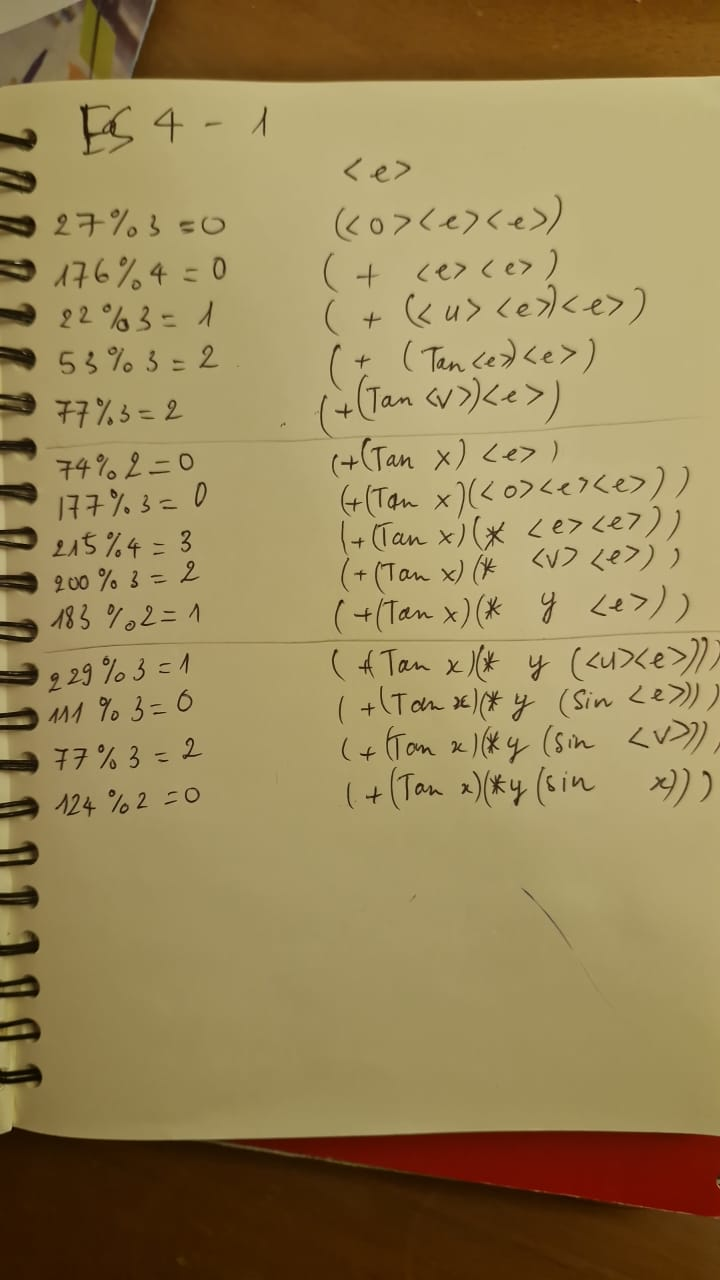 ES 4 - 1
<e>
27%3 = 0 (<o><e><e>)
176%4 = 0 ( + <e><e> )
22%3 = 1 ( + (<u> <e>)<e> )
53%3 = 2 ( + (Tan<e>)<e> )
77%3 = 2 (+(Tan <v>)<e>)
74%2 = 0 (+(Tan x) <e> )
177%3 = 0 (+(Tan x)(<o><e><e>))
215%4 = 3 (+(Tan x)(* <e><e>))
200%3 = 2 (+(Tan x)(* <v> <e>))
183%2 = 1 (+(Tan x)(* y <e>))
229%3 = 1 (+(Tan x)(* y (<u><e>)))
111%3 = 0 (+(Tan x)(* y (Sin <e>)))
77%3 = 2 (+(Tan x)(*y (sin <v>)))
124%2 = 0 (+(Tan x)(*y(sin x)))